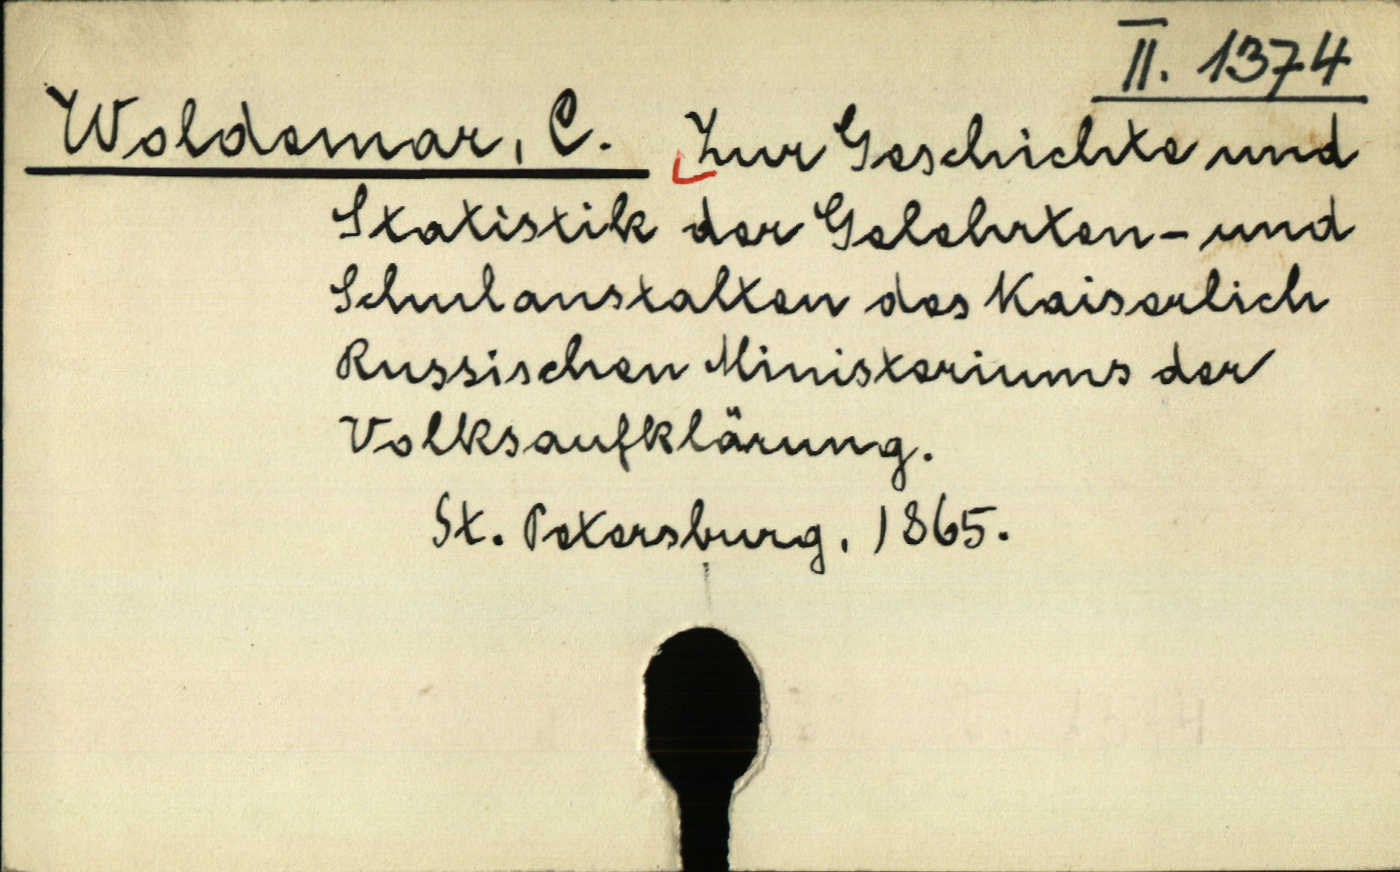 II. 1374
Woldemar, C. Zur Geschichte und
Statistik der Gelehrten- und
Schulanstalten des Kaiserlich
Russischen Ministeriums der
Volksaufklärung.
St. Petersburg, 1865.